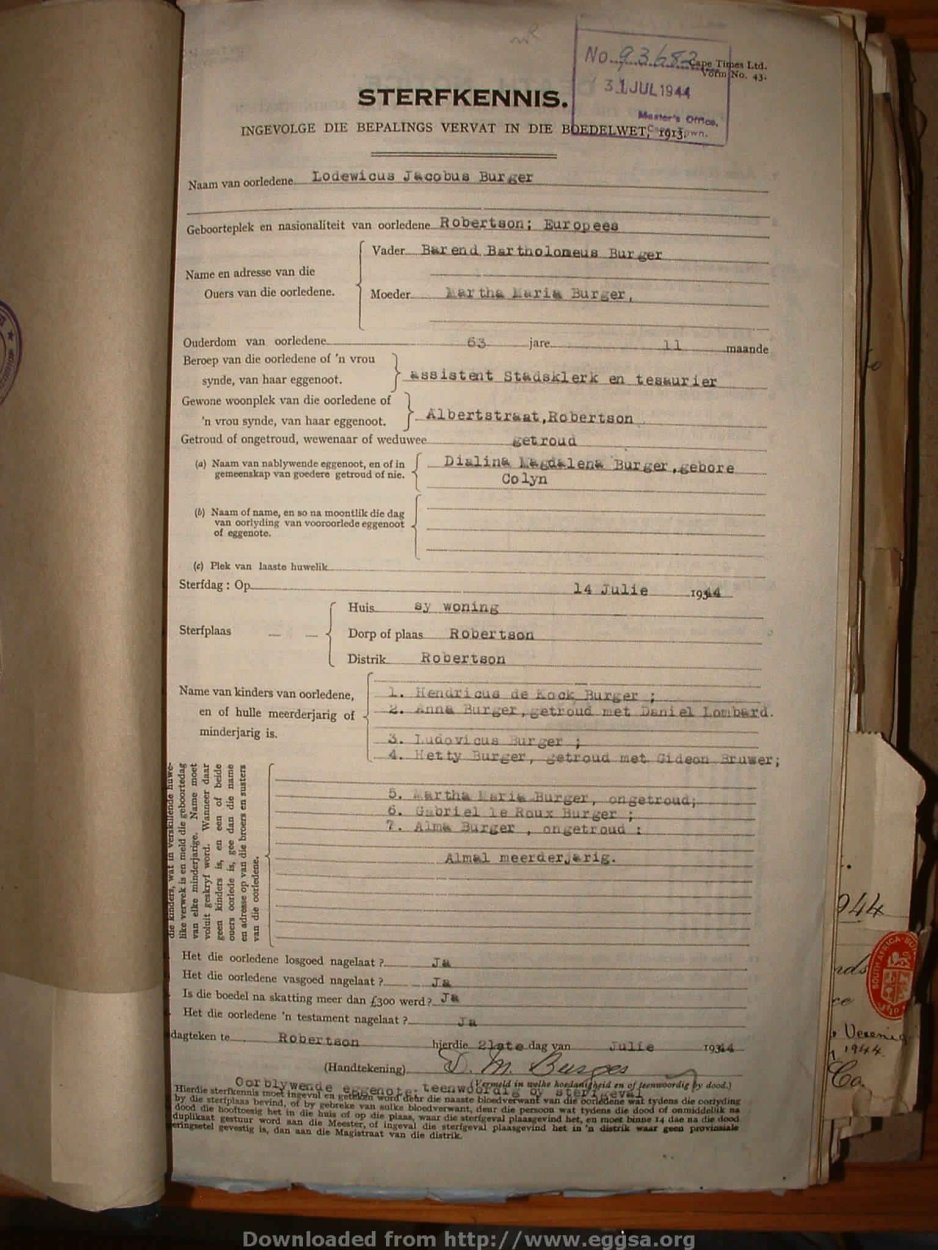 No. 93682
Cape Times Ltd.
Vorm No. 43.
31 JUL 1944
Master's Office,
Cape Town.
STERFKENNIS.
INGEVOLGE DIE BEPALINGS VERVAT IN DIE BOEDELWET, 1913.
Naam van oorledene Lodewicus Jacobus Burger
Geboorteplek en nasionaliteit van oorledene Robertson; Europees
Name en adresse van die Ouers van die oorledene.
Vader Barend Bartholomeus Burger
Moeder Martha Maria Burger,
Ouderdom van oorledene 63 jare 11 maande
Beroep van die oorledene of 'n vrou
synde, van haar eggenoot. assistent Stadsklerk en tesaurier
Gewone woonplek van die oorledene of
'n vrou synde, van haar eggenoot. Albertstraat, Robertson
Getroud of ongetroud, wewenaar of weduwee getroud
(a) Naam van nablywende eggenoot, en of in
gemeenskap van goedere getroud of nie.
Dialina Magdalena Burger, gebore
Colyn
(b) Naam of name, en so na moontlik die dag
van oorlyding van vooroorlede eggenoot
of eggenote.
(c) Plek van laaste huwelik
Sterfdag : Op 14 Julie 1944
Sterfplaas
Huis sy woning
Dorp of plaas Robertson
Distrik Robertson
Name van kinders van oorledene,
en of hulle meerderjarig of
minderjarig is.
1. Hendricus de Kock Burger ;
2. Anna Burger, getroud met Daniel Lombard.
3. Ludovicus Burger ;
4. Hetty Burger, getroud met Gideon Bruwer;
die kinders, wat in verskillende huwe-
like verwek is en meld die geboortedag
van elke minderjarige. Name moet
voluit geskryf word. Wanneer daar
geen kinders is, en een of beide
ouers oorlede is, gee dan die name
en adresse op van die broers en susters
van die oorledene.
5. Martha Maria Burger, ongetroud;
6. Gabriel le Roux Burger ;
7. Alma Burger , ongetroud :
Almal meerderjarig.
Het die oorledene losgoed nagelaat ? Ja
Het die oorledene vasgoed nagelaat ? Ja
Is die boedel na skatting meer dan £300 werd ? Ja
Het die oorledene 'n testament nagelaat ? Ja
dagteken te Robertson hierdie 21ste dag van Julie 1944
(Handtekening) D. M. Burger
(Vermeld in welke hoedanigheid en of teenwoordig by dood.)
Oorblywende eggenote, teenwoordig by sterfgeval
Hierdie sterfkennis moet ingevul en geteken word deur die naaste bloedverwant van die oorledene wat tydens die oorlyding
by die sterfplaas bevind, of by gebreke van sulke bloedverwant, deur die persoon wat tydens die dood of onmiddellik na
dood die hooftoesig het in die huis of op die plaas, waar die sterfgeval plaasgevind het, en moet binne 14 dae na die dood
duplikaat gestuur word aan die Meester, of, ingeval die sterfgeval plaasgevind het in 'n distrik waar geen provinsiale
eringsetel gevestig is, dan aan die Magistraat van die distrik.
944
SOUTH AFRICA
Vereenig
1944
Co.
Downloaded from http://www.eggsa.org